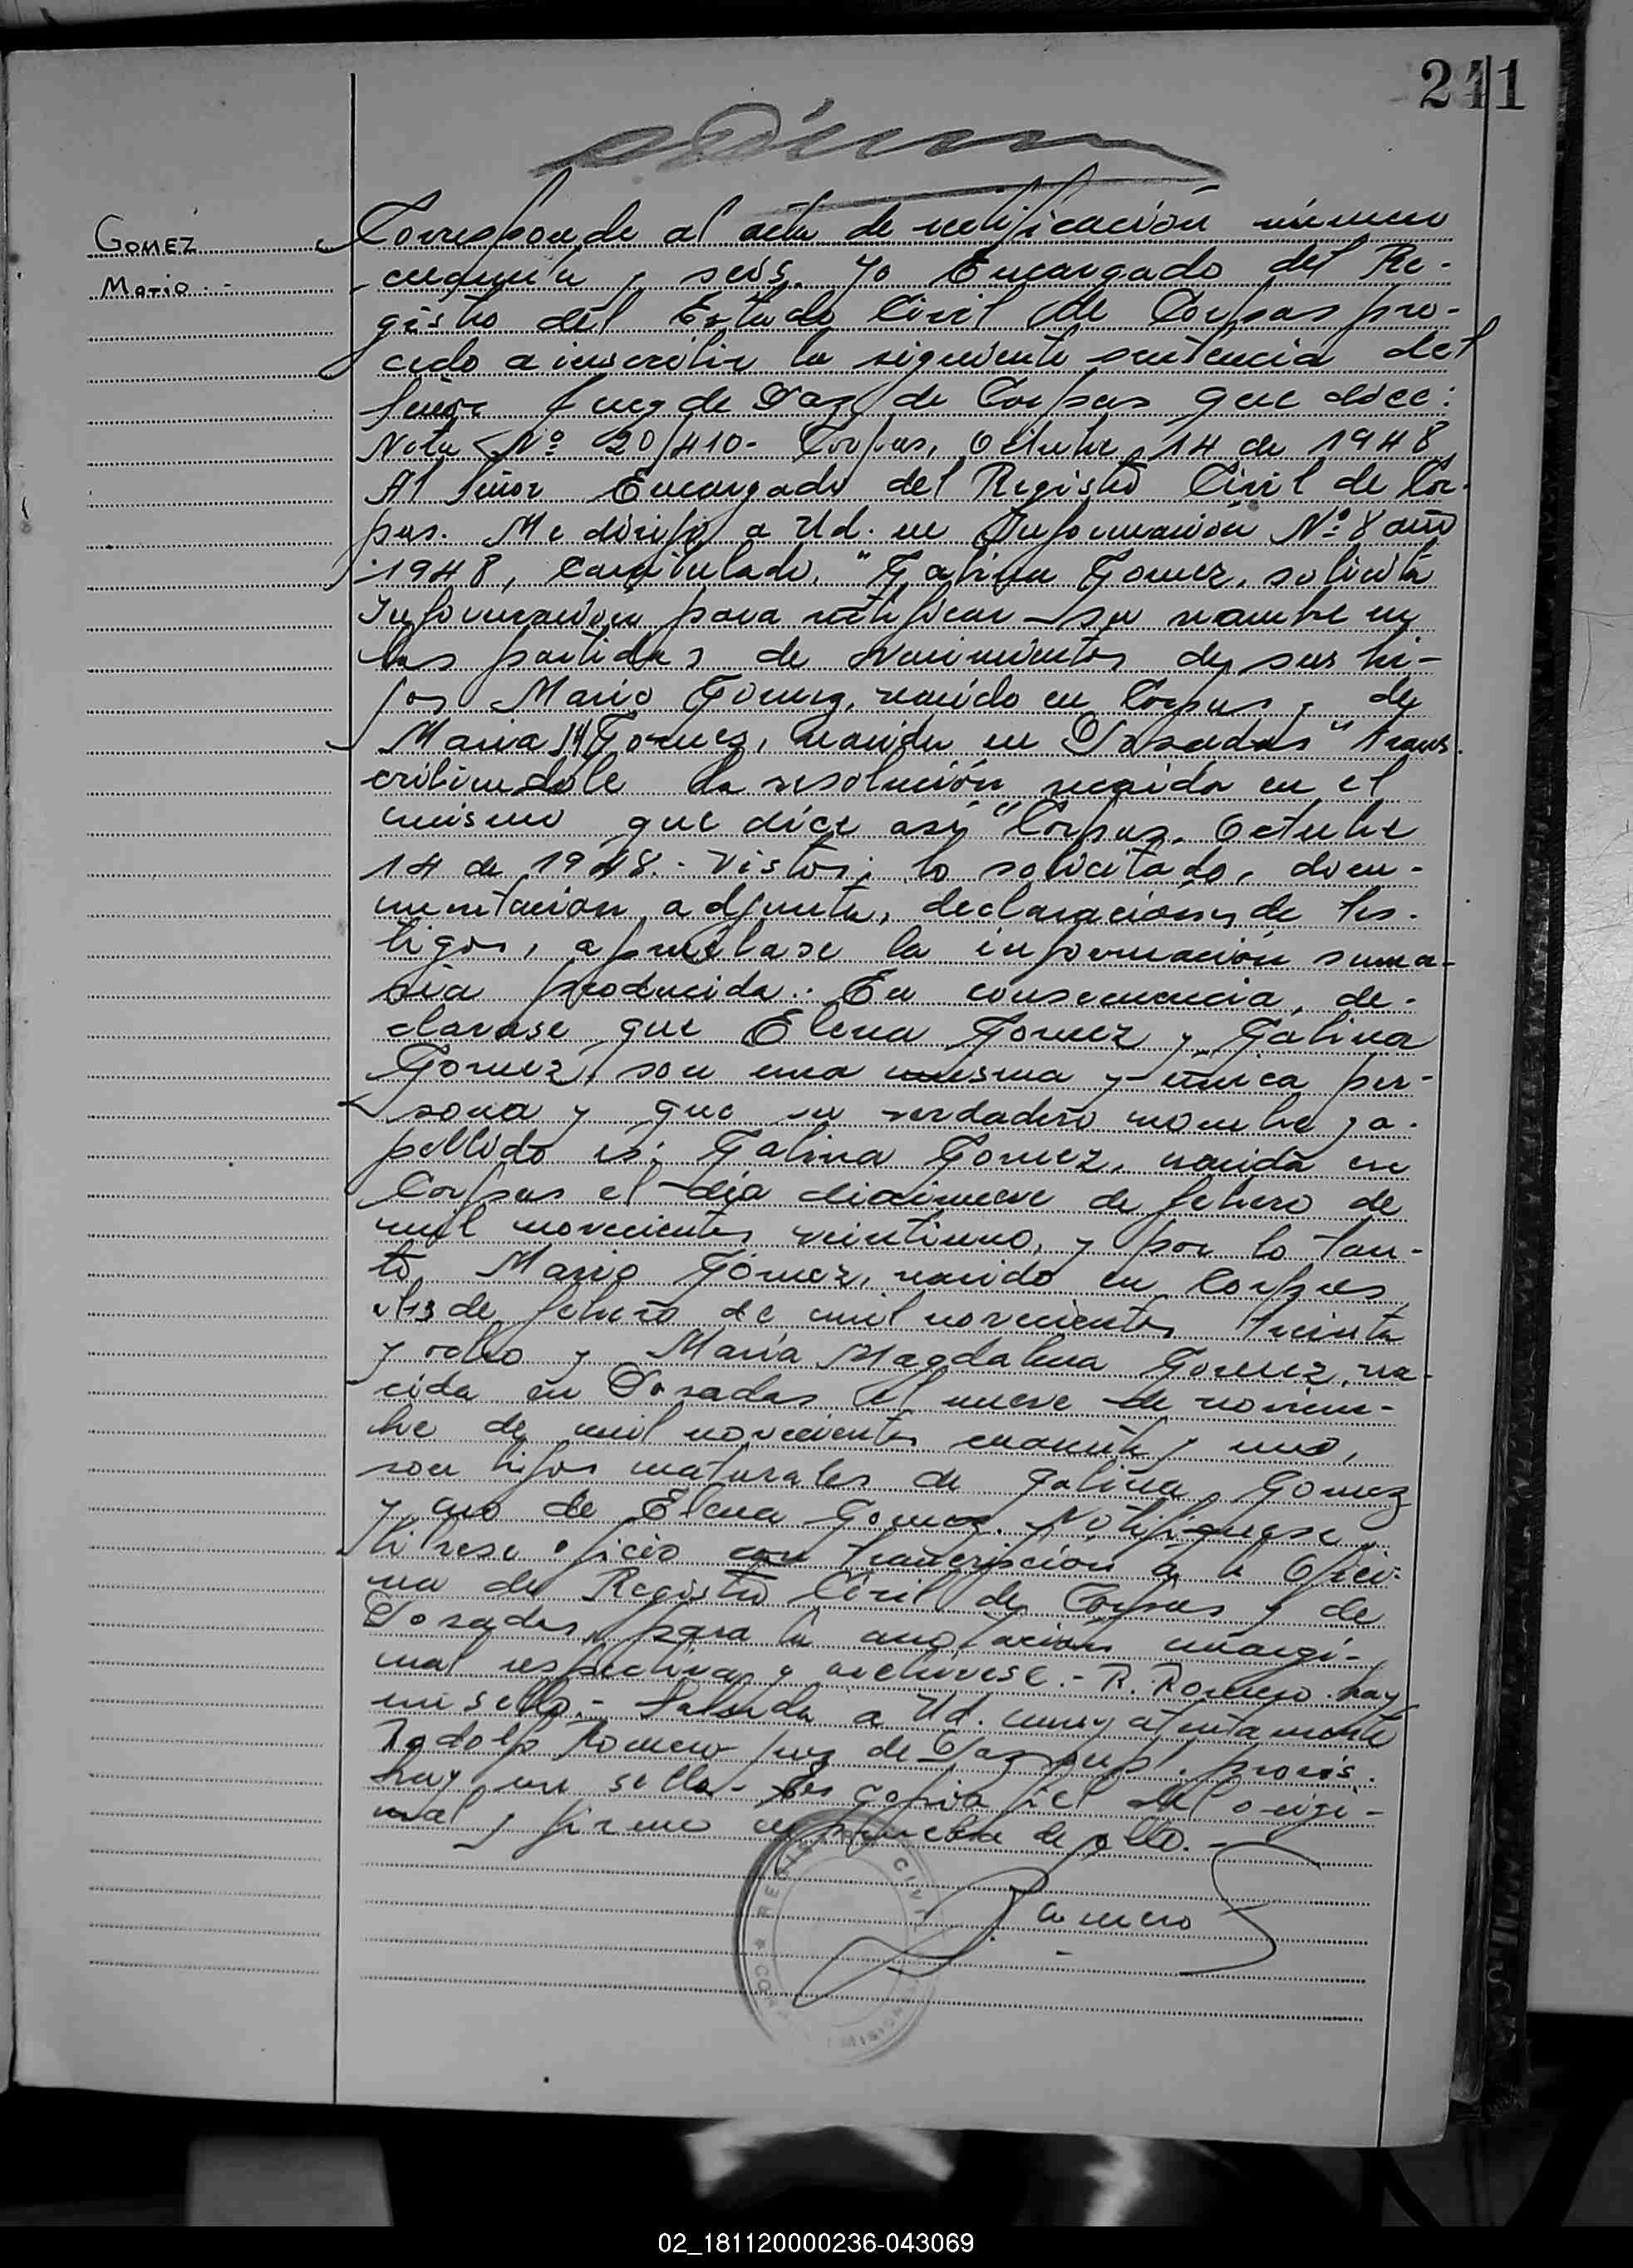 241
GOMEZ
Mario.-
Corresponde al acta de rectificación número
cincuenta y seis. Yo Encargado del Re-
gistro del Estado Civil de Corpus pro-
cedo a inscribir la siguiente sentencia del
señor Juez de Paz de Corpus que dice:
Nota Nº 20/410- Corpus, Octubre 14 de 1948
Al señor Encargado del Registro Civil de Cor-
pus. Me dirijo a Ud. en Información Nº 8 año
1948, caratulado, "Galina Gomez, solicita
Información para rectificar su nombre en
las partidas de nacimientos de sus hi-
jos Mario Gomez, nacido en Corpus y de
Maria M Gomez, nacida en Posadas" trans-
cribiendole la resolución recaida en el
mismo que dice asi "Corpus, Octubre
14 de 1948.- Vistos; lo solicitado, docu-
mentacion adjunta, declaraciones de tes-
tigos, apruebase la información suma-
ria producida.- En consecuencia, de-
clarase que Elena Gomez y Galina
Gomez, son una misma y única per-
sona y que su verdadero nombre y a-
pellido es: Galina Gomez, nacida en
Corpus el dia diecinueve de febrero de
mil novecientos veintiuno, y por lo tan-
to Mario Gómez, nacido en Corpus
el 13 de febrero de mil novecientos treinta
y ocho y María Magdalena Gomez, na-
cida en Posadas el nueve de noviem-
bre de mil novecientos cuarenta y uno,
son hijos naturales de Galina Gomez
y no de Elena Gomez. Notifiquese,
librese oficio con transcripción a la Ofici-
na de Registro Civil de Corpus y de
Posadas para la anotación margi-
nal respectiva y archivese.- R. Romero. hay
un sello.- Saluda a Ud. muy atentamente
Rodolfo Romero Juez de Paz Supl. provis.
hay un sello- Es copia fiel del origi-
nal y firmo en prueba de ello.-
Romero
REGISTRO CIVIL
02_181120000236-043069